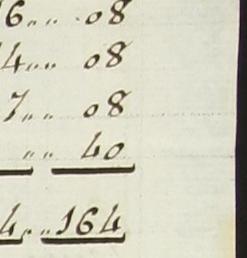 6 〃 〃 08
4 〃 〃 08
7 〃 〃 08
〃 〃 40
4 〃 〃 164